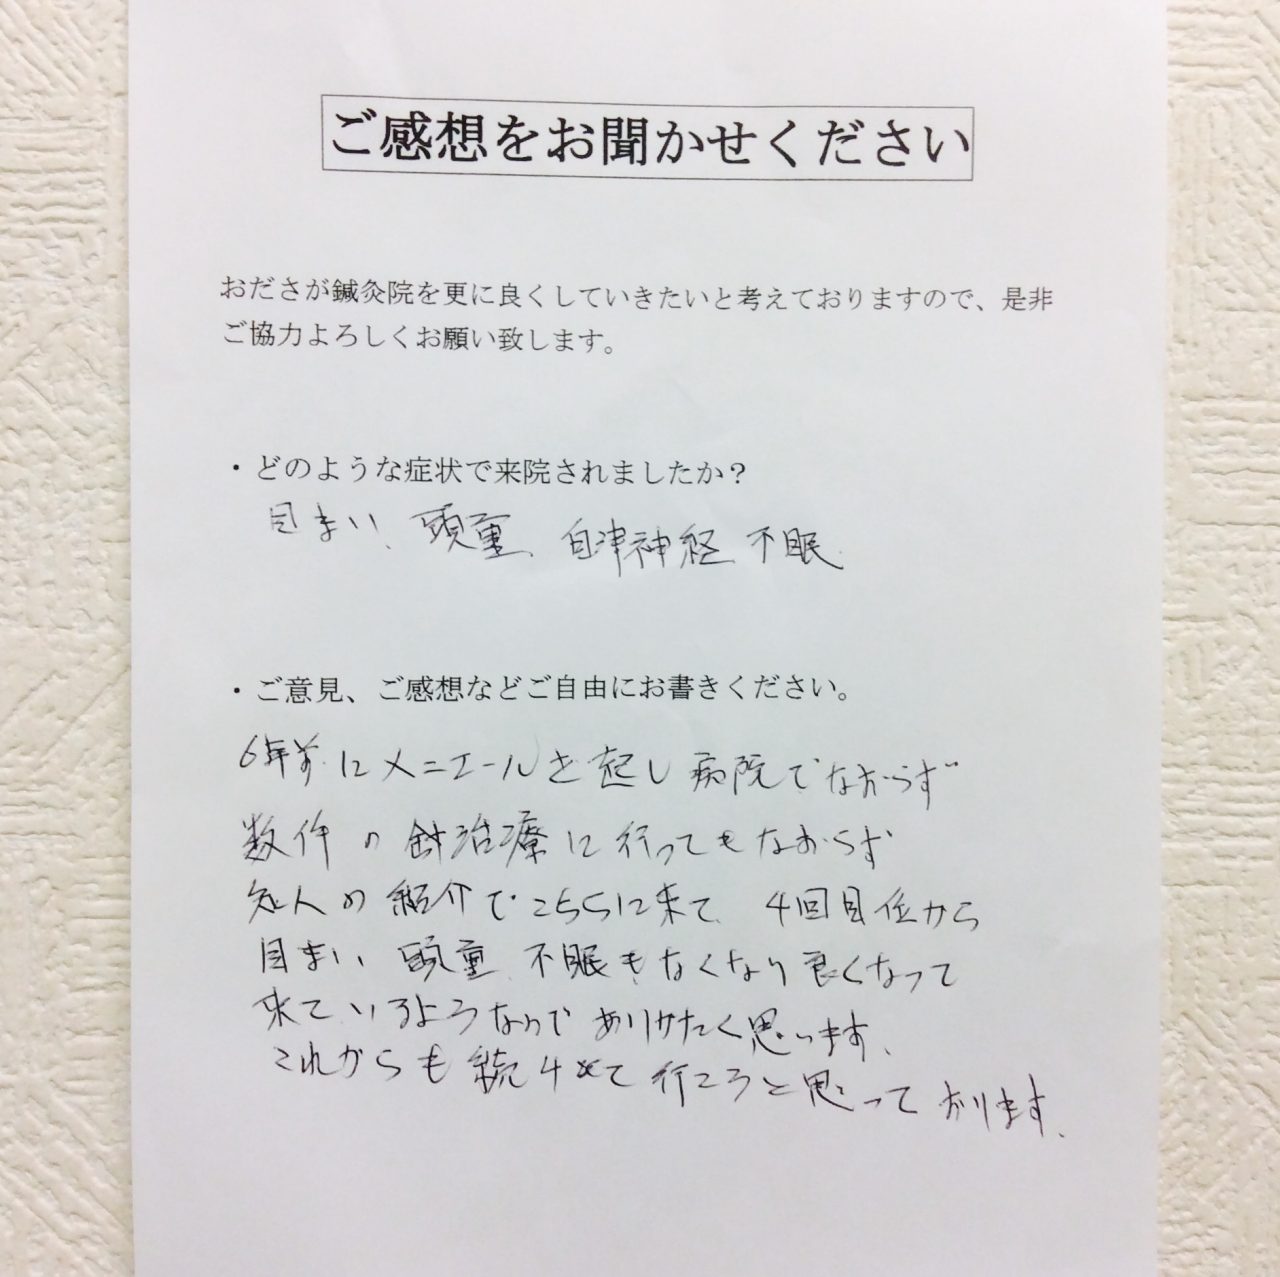 ご感想をお聞かせください
おださが鍼灸院を更に良くしていきたいと考えておりますので、是非
ご協力よろしくお願い致します。
・どのような症状で来院されましたか？
目まい、頭重、自津神経 不眠
・ご意見、ご感想などご自由にお書きください。
6年前にメニエールを起し病院でなおらず
数件の針治療に行ってもなおらず
知人の紹介でこちらに来て、4回目位から
目まい、頭重、不眠もなくなり良くなって
来ているようなのでありがたく思います、
これからも続けて行こうと思っております、